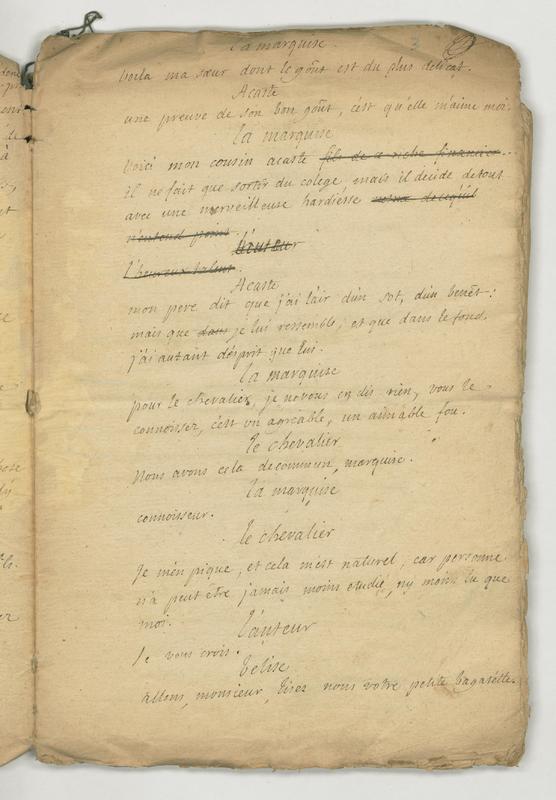 la marquise.
3
voila ma sœur dont le goût est du plus delicat.
Acaste
une preuve de son bon goût, c'est qu'elle m'aime moi.
la marquise
voici mon cousin acaste fils de ce riche financier...
il ne fait que sortir du colege, mais il decide de tout
avec une merveilleuse hardiesse même de ce qu'il
n'entend point.
l'auteur
l'heureux talent.
Acaste
mon pere dit que j'ai l'air d'un sot, d'un benêt:
mais que dans je lui ressemble, et que dans le fond,
j'ai autant d'esprit que lui.
la marquise
pour le chevalier, je ne vous en dis rien, vous le
connoissez, c'est un agréable, un aimable fou.
le chevalier
Nous avons cela de commun, marquise.
la marquise
connoisseur.
le chevalier
Je m'en pique, et cela m'est naturel, car personne
n'a peut être jamais moins etudié, ny moins lu que
moi.
l'auteur
Je vous crois.
belise
allons, monsieur, lisez nous votre petite bagatelle.